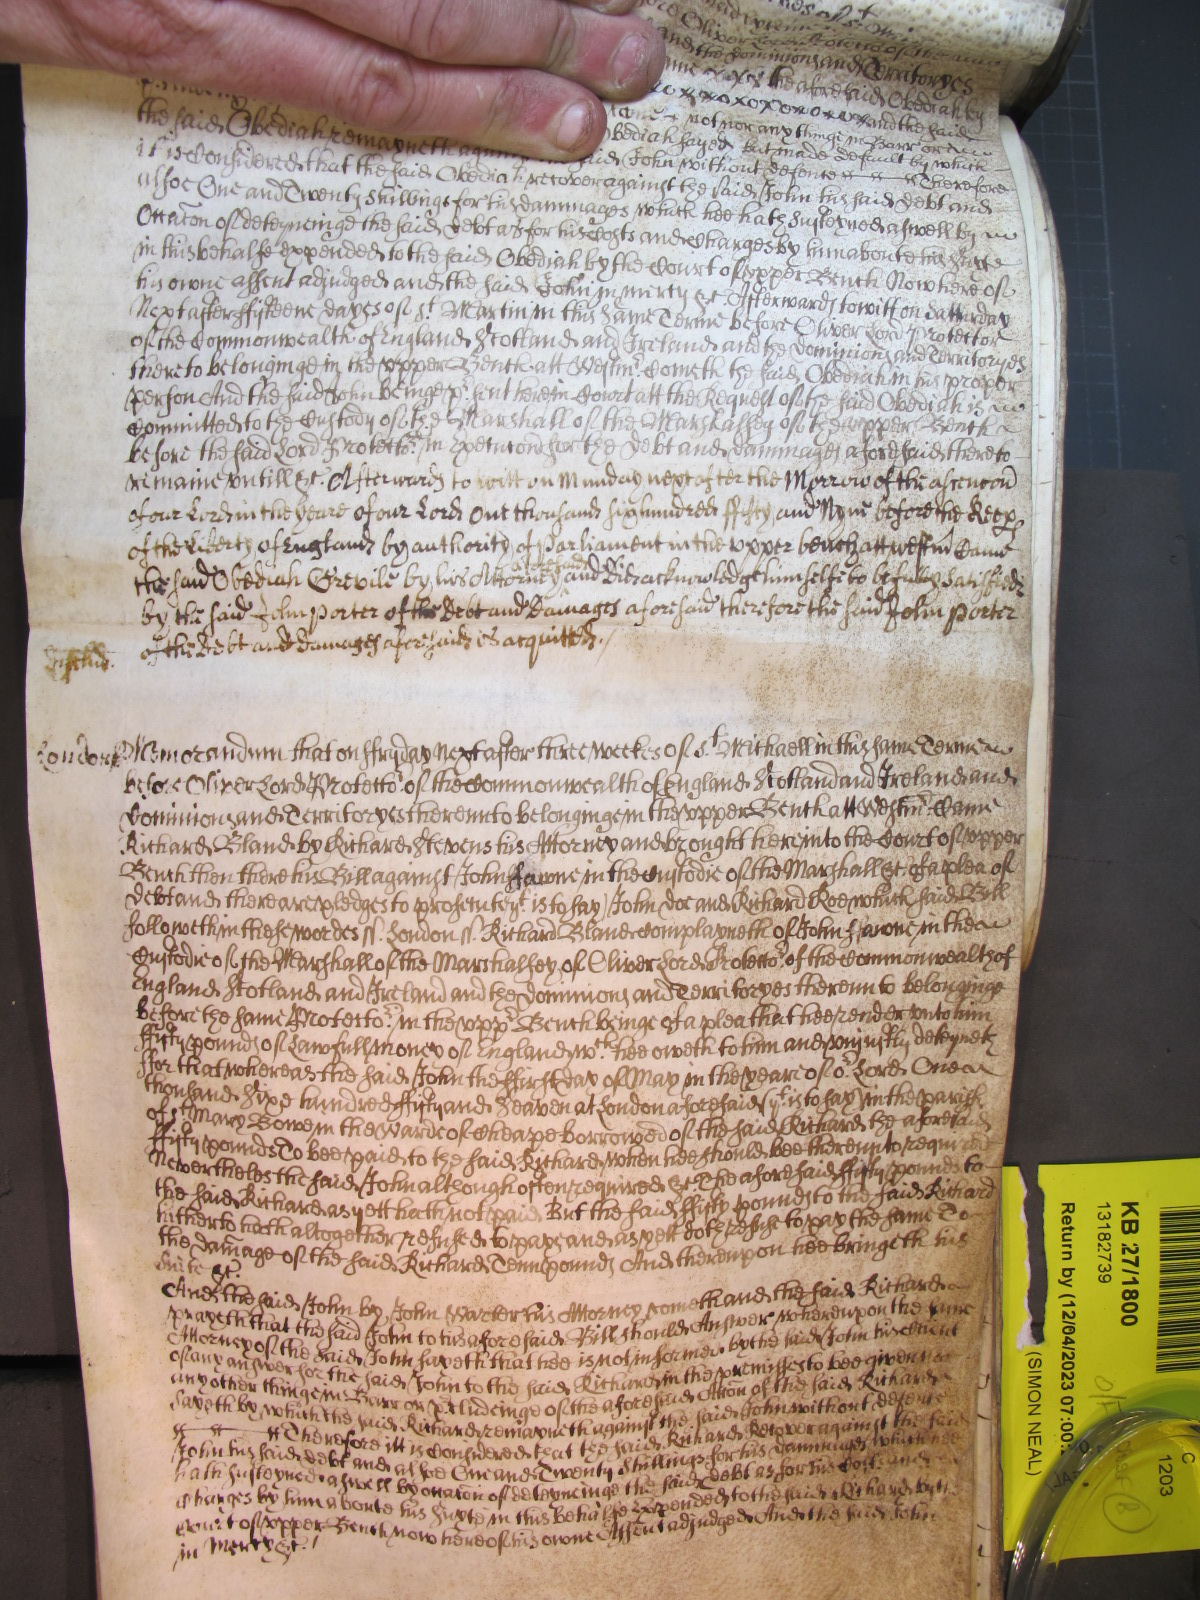 and the dominions and Territoryes
the aforesaid Obediah by
and the said
not nor any thinge in Barr or
the said Obediah remayneth against said Obediah sayed but made default by which
it is Considered that the said Obediah recover against the said John his said debt and
alsoe One and Twenty shillings for his dammages which hee hath Susteyned aswell by
Occacon of deteyneinge the said debt as for his Costs and Charges by him aboute his Suite
in this behalfe expended to the said Obediah by the Court of upper Bench Now here of
his owne assent adjudged and the said John in mercy &c Afterwards to witt on Satturday
Next after ffifteene dayes of St Martin in this same Terme before Oliver Lord Protector
of the Commonwealth of England Scotland and Ireland and the Dominions and Territoryes
thereto belonginge in the vpper Bench att Westmr Cometh the said Obediah in his proper
person And the said John beinge psent there in Court att the Request of the said Obediah is
Committed to the Custody of the Marshall of the Marshalsey of the upper Bench
before the said Lord Protector in Execucon for the debt and dammages aforesaid there to
remaine vntill &c. Afterwards to witt on Munday next after the Morrow of the ascencon
of our Lord in the yeare of our Lord One thousand six hundred ffifty and Nyne before the Keep
of the liberty of England by authority of Parliament in the vpper bench att westm Came
the said Obediah Grevile by his Attorney aforesaid and did acknowledge himselfe to be fully satisfied
by the said John Porter of the debt and damages aforesaid therefore the said John Porter
of the debt and damages aforesaid is acquitted.
London Memorandum that on ffryday next after three weekes of St Michaell in this same Terme
before Oliver Lord Protector of the Commonwealth of England Scotland and Ireland and
dominions and Territoryes thereunto belonginge in the vpper Bench att Westmr Came
Richard Bland by Richard Stevens his Attorney and brought here into the Court of vpper
Bench then there his Bill against John ffawne in the Custodie of the Marshall &c of a plea of
debt and there are pledges to prosecute yt is to say John doe and Richard Roe which said Bill
followeth in these wordes ss. London ss. Richard Bland Complayneth of John ffawne in the
Custodie of the Marshall of the Marshalsey of Oliver Lord Protector of the Commonwealth of
England Scotland and Ireland and the Dominions and Territoryes thereunto belonginge
before the same Protector in the vpp Bench beinge of a plea that hee render vnto him
ffifty pounds of Lawfull money of England wch hee oweth to him and uniustly deteyneth
ffor that whereas the said John the ffirst day of May in the yeare of or Lord One
thousand Sixe hundred ffifty and Seaven at London aforesaid (yt is to say) in the parish
of St Mary Bowe in the Warde of Cheape borrowed of the said Richard the aforesaid
ffifty pounds To bee paid to the said Richard when hee should bee thereunto required
Neverthelesse the said John although often required &c The aforesaid ffifty pounds to
the said Richard as yett hath not paid But the said ffifty pounds to the said Richard
hitherto hath altogether refused to paye and as yett doth refuse to pay the same To
the damage of the said Richard Tenn pounds And thereupon hee bringeth his
Suite &c.
And the said John by John Warter his Attorney cometh and the said Richard
prayeth that the said John to his aforesaid Bill should Answer whereupon the same
Attorney of the said John sayeth that hee is not informed by the said John his Client
of any answer for the said John to the said Richard in the premisses to bee given nor
any other thinge in Barr or precludeinge of the aforesaid Accon of the said Richard
sayeth by which the said Richard remayneth against the said John without defence
Therefore itt is Considered that the said Richard Recover against the said
John his said debt and alsoe One and Twenty Shillings for his Dammages which hee
hath Susteyned aswell by occacon of deteyneinge the said Debt as for his Costs and
Charges by him aboute his Suyte in this behalfe Expended to the said Richard by the
Court of vpper Bench now here of his owne Assent adjudged And the said John
in Mercy &c.
KB 27/1800
13182739
Return by (12/04/2023 07:00:
(SIMON NEAL)
C
1203